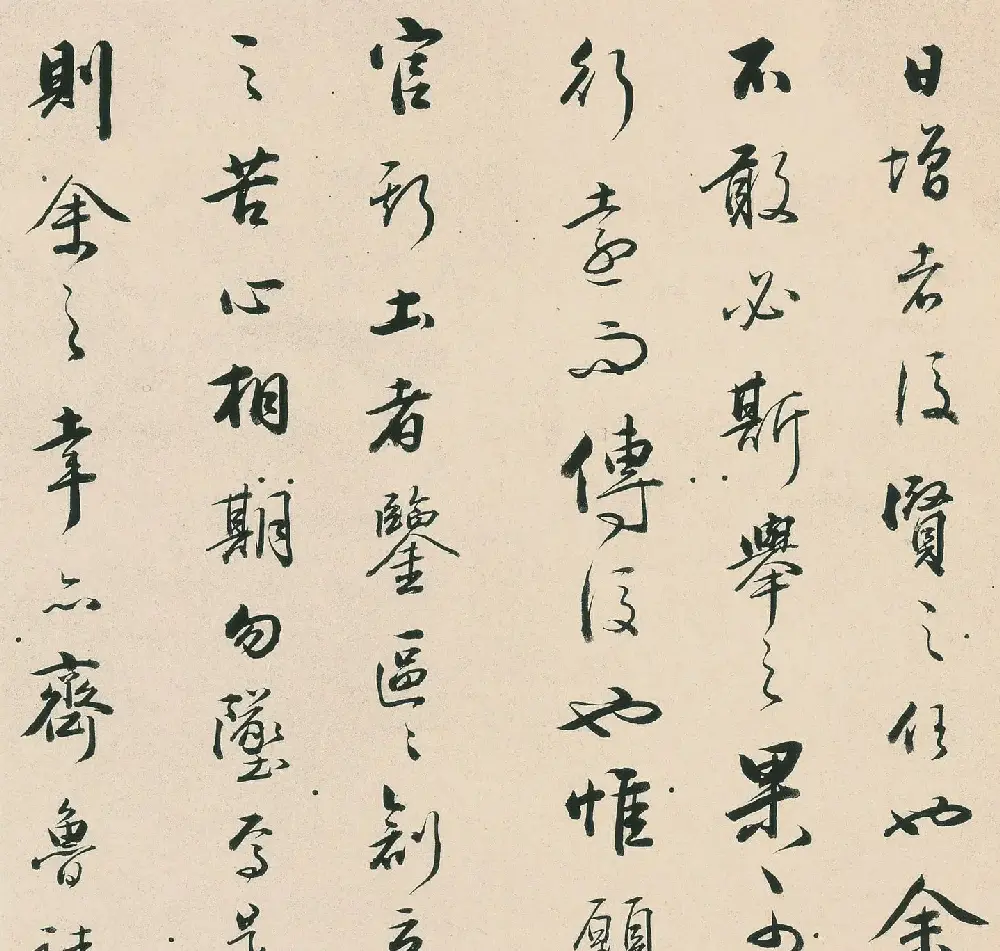 日增者後賢之任也余
不敢必斯舉之果〻可
行遠而傳後也惟願
官斯土者鑒區〻創
之苦心相期勿墜焉是
則余之幸亦齊魯